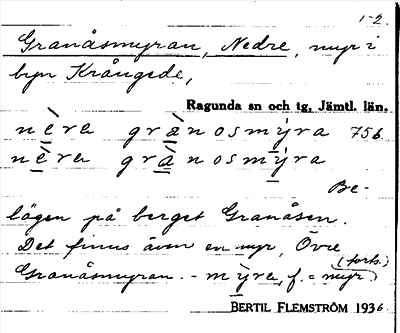 1-2.
Granåsmyran, Nedre, myr i
byn Krångede,
Ragunda sn och tg, Jämtl. län.
nèra grànosmỳra 756
nèra grànosmýra
Be-
lägen på berget Granåsen.
Det finns även en myr, Övre
(forts.)
Granåsmyran. - mỳra, f. = myr
BERTIL FLEMSTRÖM 1936